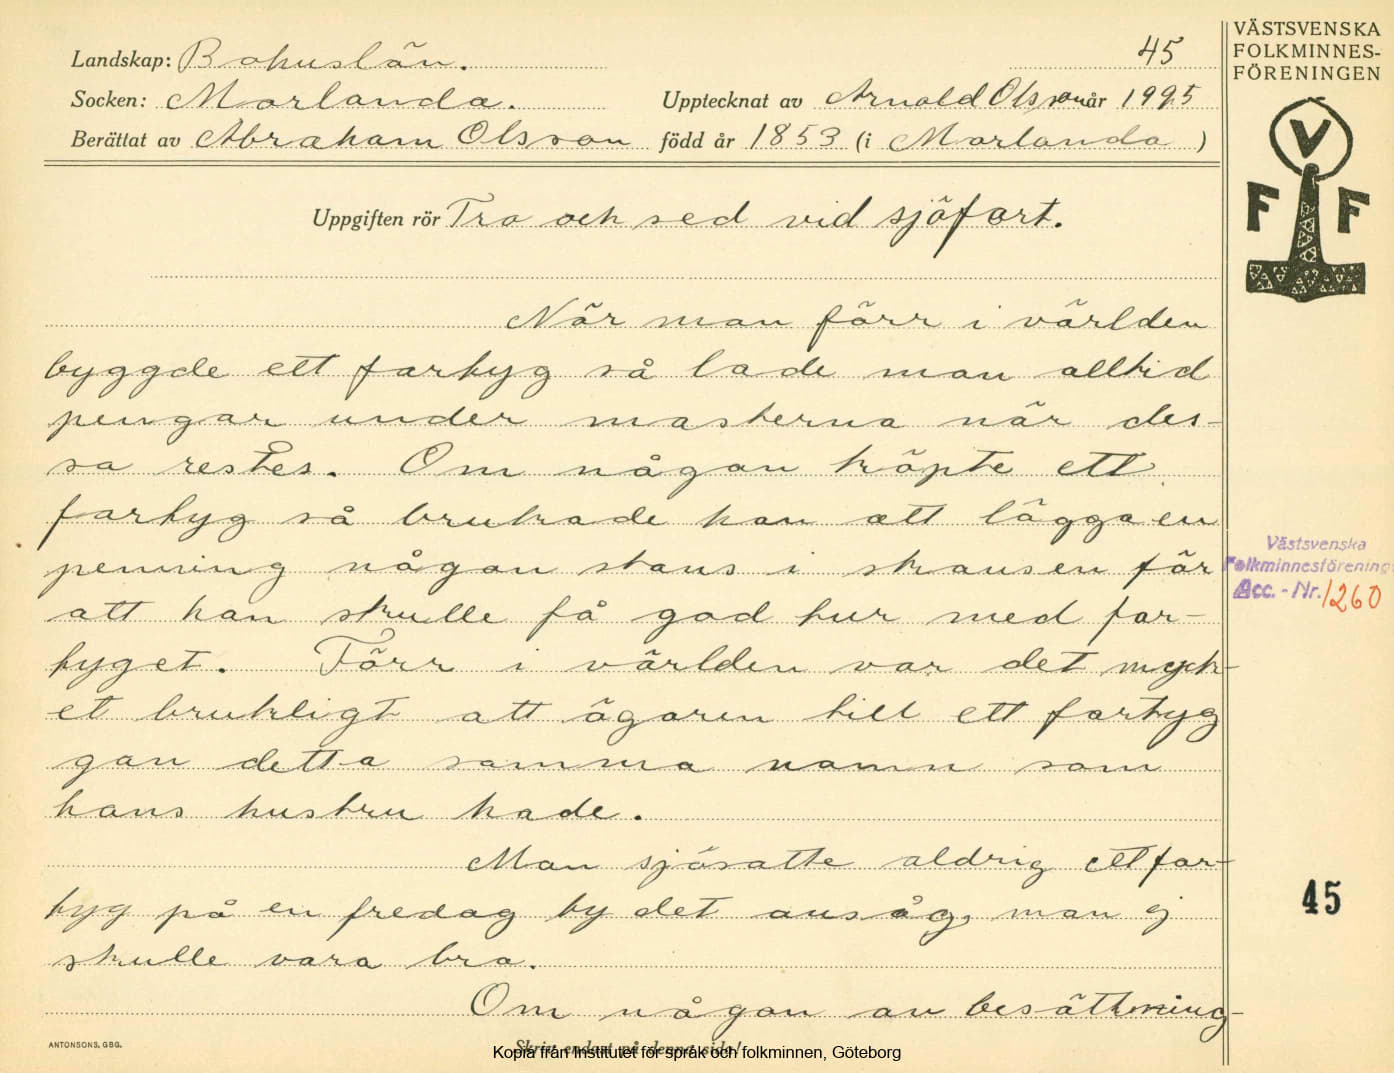 Landskap: Bohuslän.
45
Socken: Morlanda.
Upptecknat av Arnold Olsson år 1925
Berättat av Abraham Olsson född år 1853 (i Morlanda )
Uppgiften rör Tro och sed vid sjöfart.
När man förr i världen
byggde ett fartyg så lade man alltid
pengar under masterna när des-
sa restes. Om någon köpte ett
fartyg så brukade han att lägga en
penning någon stans i skansen för
att han skulle få god tur med far-
tyget. Förr i världen var det myck-
et brukligt att ägaren till ett fartyg
gav detta samma namn som
hans hustru hade.
Man sjösatte aldrig ett far-
tyg på en fredag ty det ansåg man ej
skulle vara bra.
Om någon av besättning-
ANTONSONS, GBG.
Skriv endast på denna sida!
Kopia från Institutet för språk och folkminnen, Göteborg
VÄSTSVENSKA
FOLKMINNES-
FÖRENINGEN
V
F F
Västsvenska
Folkminnesförening
Acc. - Nr. 1260
45